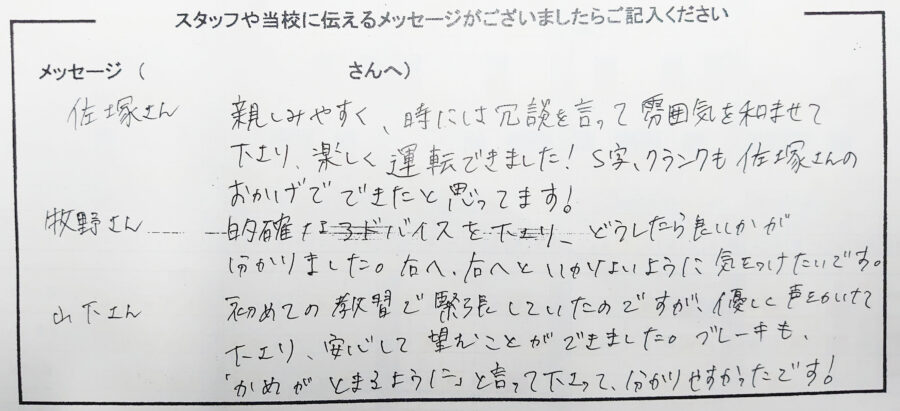 スタッフや当校に伝えるメッセージがございましたらご記入ください
メッセージ（　　　　　　　　さんへ）
佐塚さん　親しみやすく、時には冗談を言って雰囲気を和ませて
下さり、楽しく運転できました！S字、クランクも佐塚さんの
おかげでできたと思ってます！
牧野さん　的確なアドバイスを下さり、どうしたら良いかが
分かりました。右へ、右へといかないように気をつけたいです。
山下さん　初めての教習で緊張していたのですが、優しく声をかけて
下さり、安心して望むことができました。ブレーキも、
「かめがとまるように」と言って下さって、分かりやすかったです！